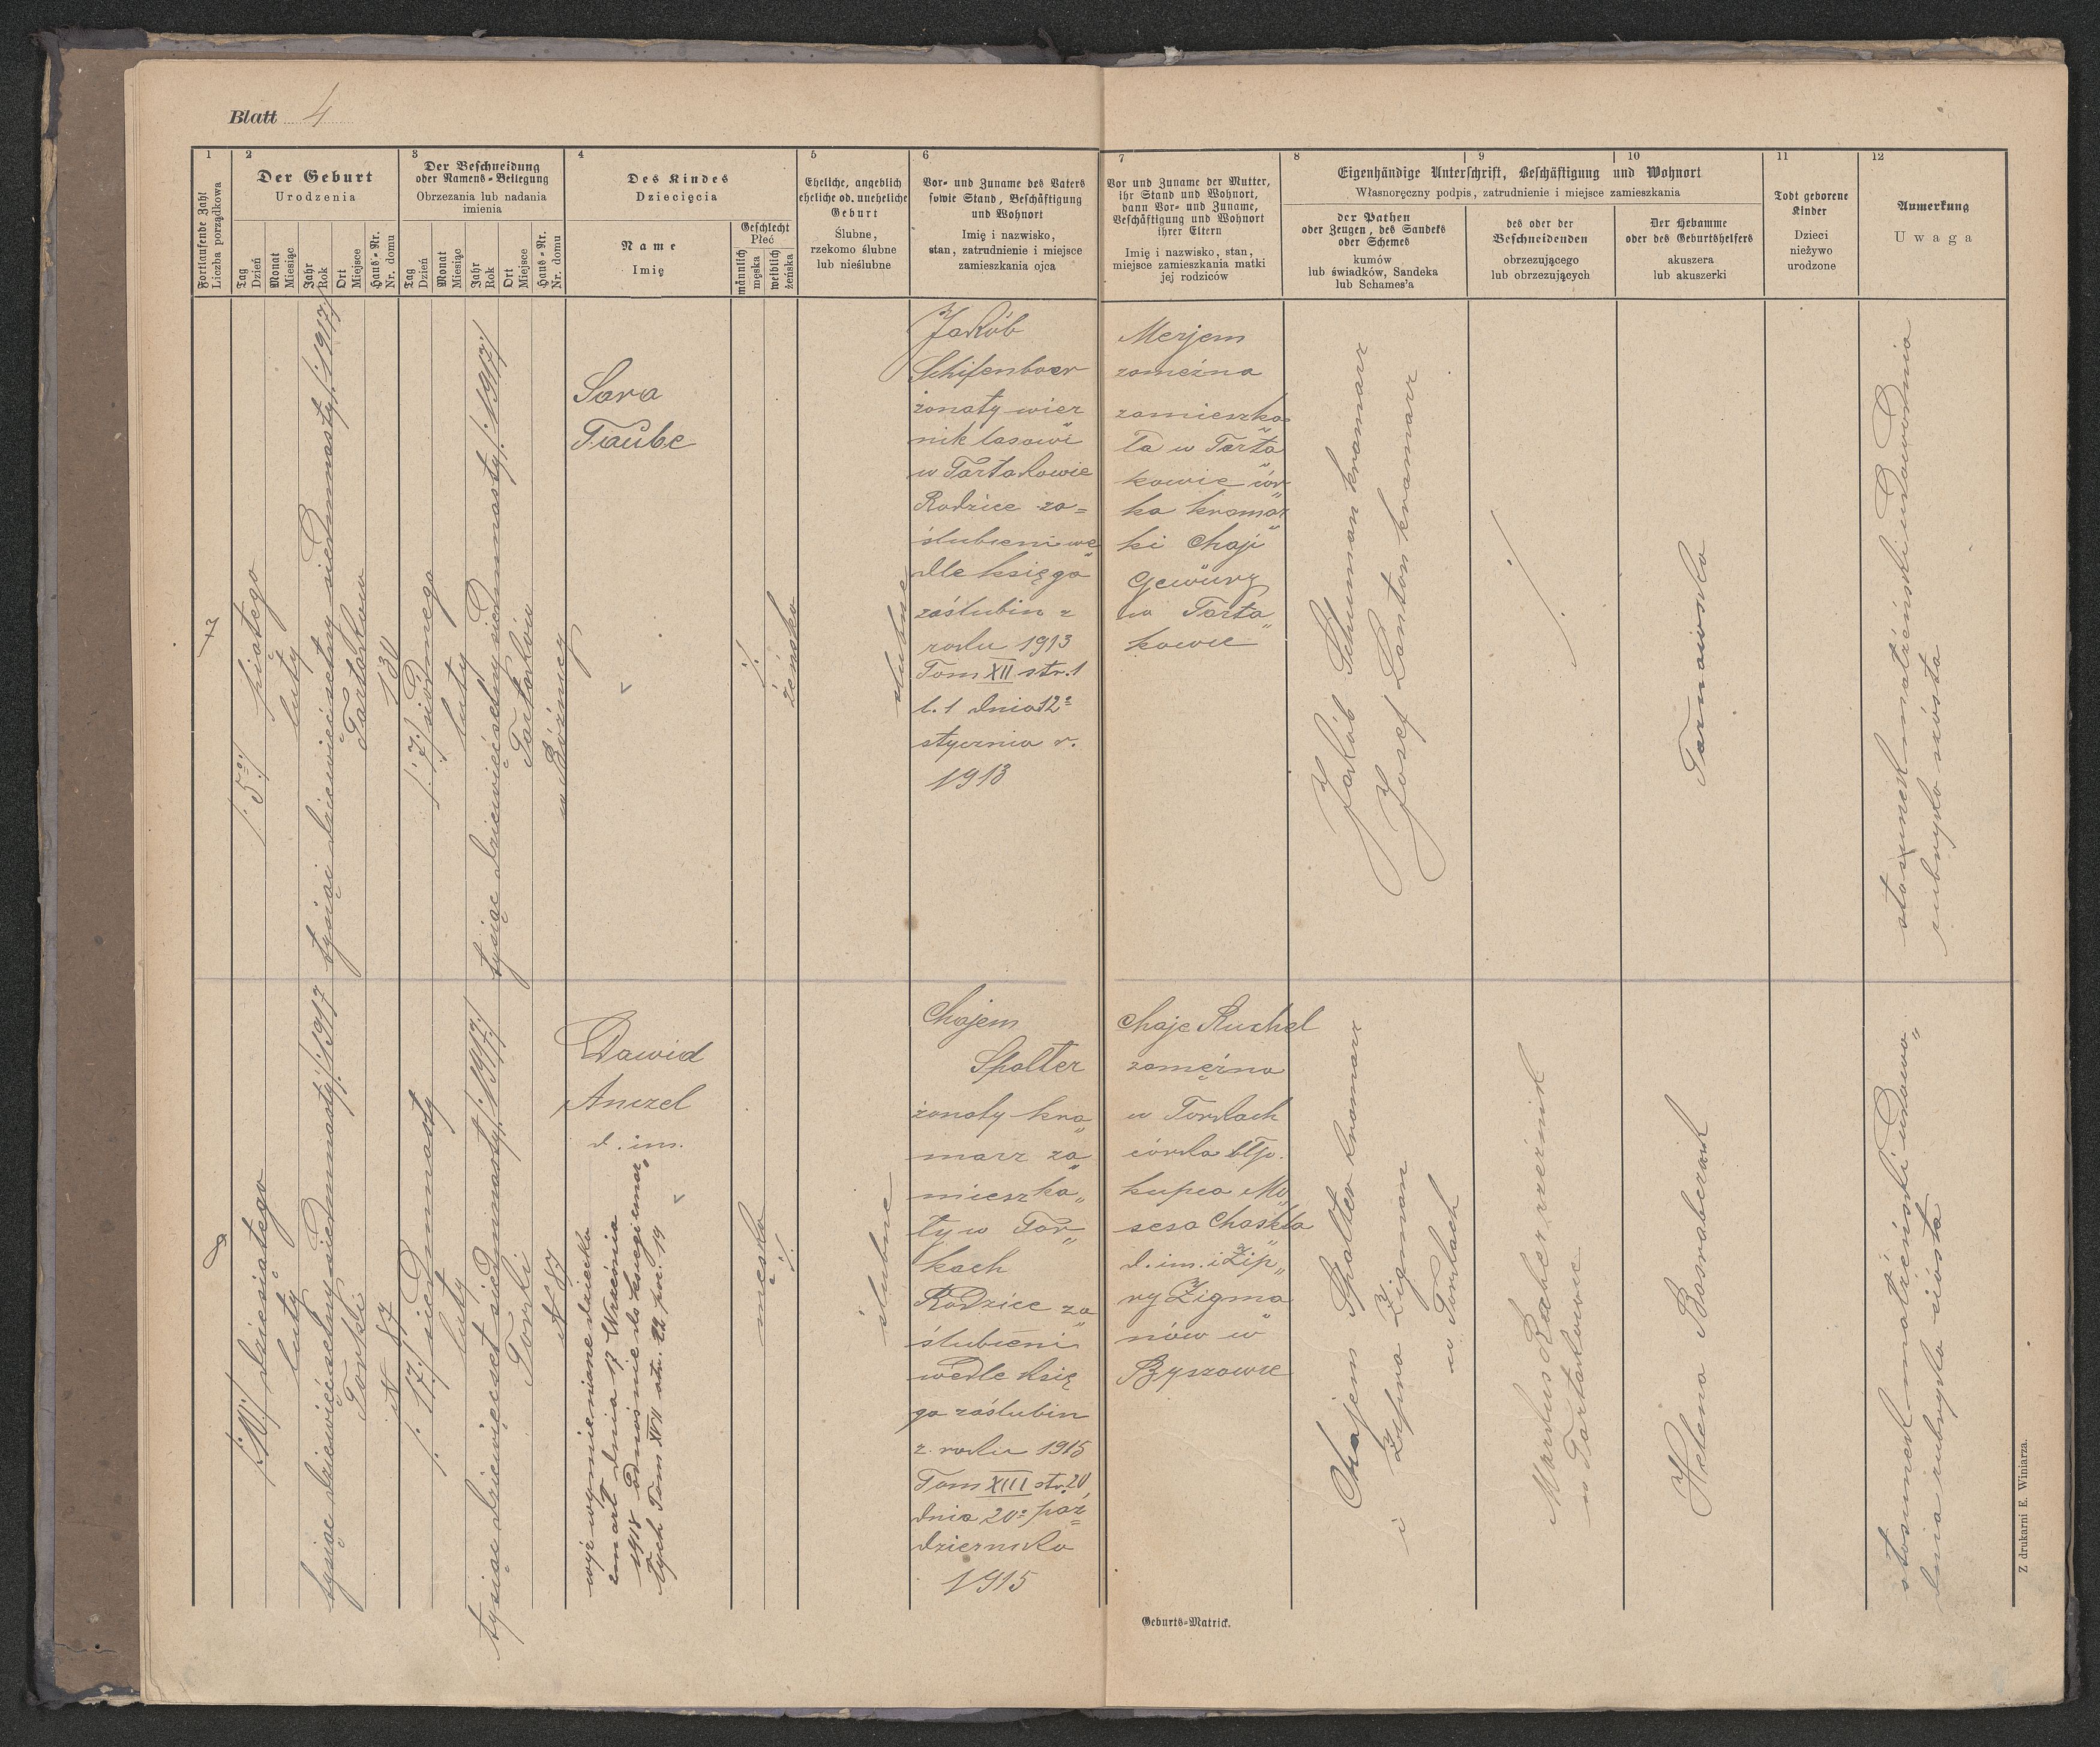 Blatt 4
1
Fortlaufende Zahl
Liczba porządkowa
2
Der Geburt
Urodzenia
Tag
Dzień
Monat
Miesiąc
Jahr
Rok
Ort
Miejsce
Haus-Nr.
Nr. domu
3
Der Beschneidung
oder Namens-Beilegung
Obrzezania lub nadania
imienia
Tag
Dzień
Monat
Miesiąc
Jahr
Rok
Ort
Miejsce
Haus-Nr.
Nr. domu
4
Des Kindes
Dziecięcia
Name
Imię
Geschlecht
Płeć
männlich
męska
weiblich
żeńska
5
Eheliche, angeblich
eheliche od. uneheliche
Geburt
Ślubne,
rzekomo ślubne
lub nieślubne
6
Vor- und Zuname des Vaters
sowie Stand, Beschäftigung
und Wohnort
Imię i nazwisko,
stan, zatrudnienie i miejsce
zamieszkania ojca
7
Vor und Zuname der Mutter,
ihr Stand und Wohnort,
dann Vor- und Zuname,
Beschäftigung und Wohnort
ihrer Eltern
Imię i nazwisko, stan,
miejsce zamieszkania matki
jej rodziców
8
9
10
Eigenhändige Unterschrift, Beschäftigung und Wohnort
Własnoręczny podpis, zatrudnienie i miejsce zamieszkania
der Pathen
oder Zeugen, des Sandeks
oder Schemes
kumów
lub świadków, Sandeka
lub Schames'a
des oder der
Beschneidenden
obrzezującego
lub obrzezujących
Der Hebamme
oder des Geburtshelfers
akuszera
lub akuszerki
11
Todt geborene
Kinder
Dzieci
nieżywo
urodzone
12
Anmerkung
Uwaga
/:5:/ piątego
luty
tysiąc dziewięćsetny siedmnasty /:1917
Tartaków
130
/:7:/ siódmego
luty
tysiąc dziewięćsetny siedmnasty /:1917:/
Tartaków
w Bóżnicy
Sara
Taube
żeńska
ślubne
Jakób
Schifenbaer
żonaty wier
nik lasowi
w Tartakowie
Rodzice za=
ślubieni we
dle księga
zaślubin z
roku 1913
Tom XII str. 1
l. 1 dnia 12
stycznia r.
1913
Merjem
zamężna
zamieszka
ła w Tarta
kowie cór
ka kramar
ki Chaji
Gewürz
w Tarta
kowie
Jakób Schuman kramarz
Josef Lanton kramarz
Tarnawska
stosunek małżeński udowodnia
rubryka szósta
/:10:/ dziesiątego
luty
tysiąc dziewięćsetny siedmnasty /:1917
Torki
N 87
/:17:/ siedmnasty
luty
tysiąc dziewięćset siedmnasty /:1917:/
Torki
N 87
Dawid
Anczel
d. im.
wyż wymieniane dziecko
umarł dnia 17 Września
1918 odnośnie do księgi umar
łych Tom XVII str. 22 poz. 19
męska
ślubne
Chajem
Spalter
żonaty kra
marz za
mieszka
ły w Tor
kach
Rodzice za
ślubieni
wedle księ
ga zaślubin
z. roku 1915
Tom XIII str. 20
dnia 20 paź
dziernika
1915
Chaje Ruchel
zamężna
w Torkach
córka
kupca Mo
sesa Chaskla
d. im. i Zip
ry Zigma
nów w
Byszowie
Chajem Spalter kramarz
i Zipra Zigman
w Torkach
Markus Racher rzeźnik
w Tartakowie
Helena Bosnaberach
stosunek małżeński udowo
dnia rubryka siósta
Geburts-Matrick.
Z drukarni E. Winiarza.